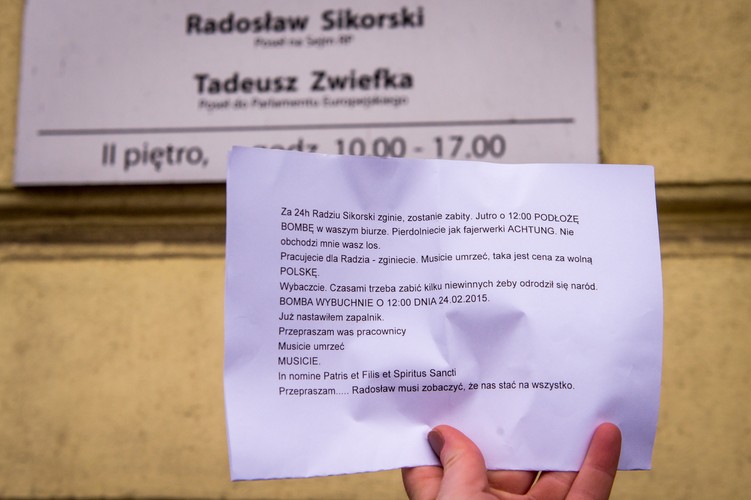 Radosław Sikorski
Poseł na Sejm RP
Tadeusz Zwiefka
Poseł do Parlamentu Europejskiego
II piętro, godz. 10.00 - 17.00
Za 24h Radziu Sikorski zginie, zostanie zabity. Jutro o 12:00 PODŁOŻĘ
BOMBĘ w waszym biurze. Pierdolniecie jak fajerwerki ACHTUNG. Nie
obchodzi mnie wasz los.
Pracujecie dla Radzia - zginiecie. Musicie umrzeć, taka jest cena za wolną
POLSKĘ.
Wybaczcie. Czasami trzeba zabić kilku niewinnych żeby odrodził się naród.
BOMBA WYBUCHNIE O 12:00 DNIA 24.02.2015.
Już nastawiłem zapalnik.
Przepraszam was pracownicy
Musicie umrzeć
MUSICIE.
In nomine Patris et Filis et Spiritus Sancti
Przepraszam..... Radosław musi zobaczyć, że nas stać na wszystko.